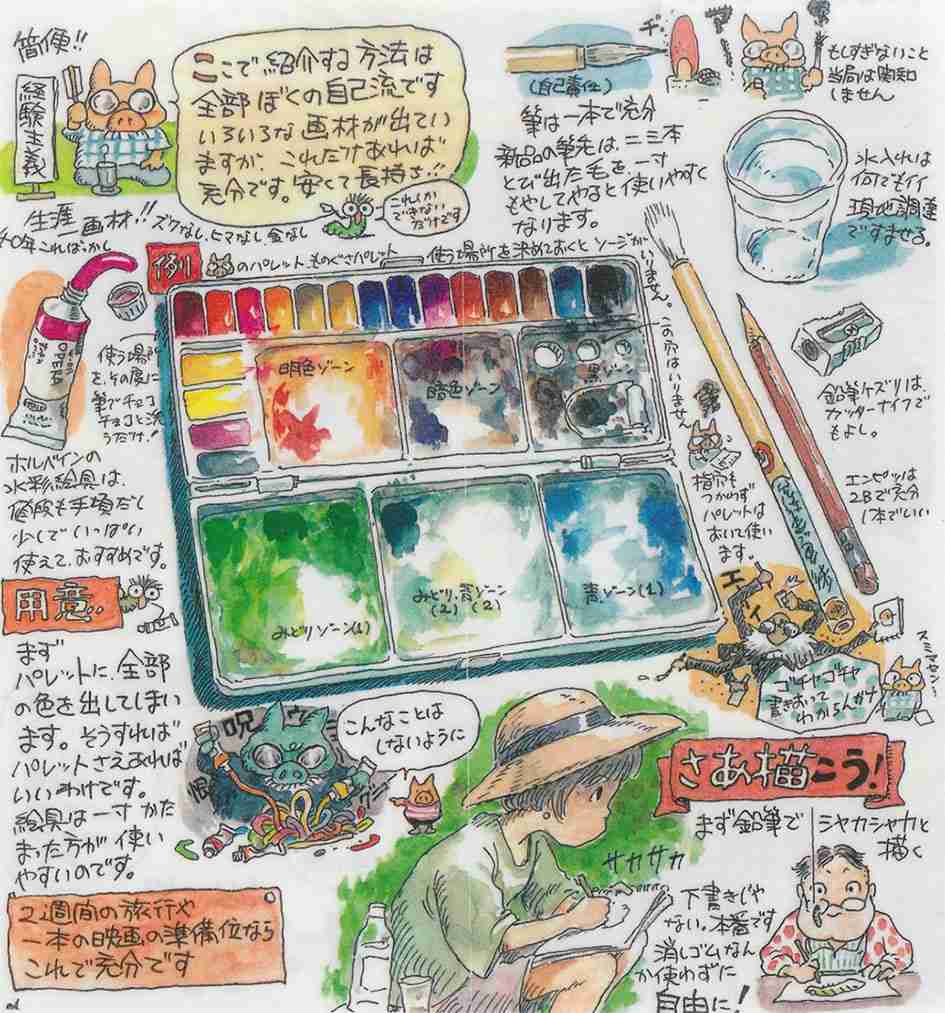 簡便!!
経験主義
ここで紹介する方法は
全部ぼくの自己流です
いろいろな画材が出てい
ますが、これだけあれば
充分です。安くて長持ち!!
これしか
できない
だけです
生涯画材!! ズクなし、ヒマなし 金なし
40年こればっかし
(自己責任)
チッ
もしすぎないこと
当局は関知
しません
筆は一本で充分
新品の筆先は、二三本
とび出た毛を、一寸
もやしてやると使いやすく
なります。
水入れは
何でもイイ
現地調達
ですませる。
例
のパレット、ものぐさパレット
使う場所を決めておくと ソージが
いりません。
使う場所
を、その度に
筆でチョコ
チョコと洗
うだけ!
OPERA
ホルベインの
水彩絵具は、
値段も手頃だし
少しでいっぱい
使えて、おすすめです。
明色ゾーン
暗色ゾーン
黒ゾーン
この穴はいりません
みどりゾーン(1)
みどり、青ゾーン
(2) (2)
青ゾーン(1)
指穴も
つかわず
パレットは
おいて使い
ます。
鉛筆ケズリは、
カッターナイフで
もよし。
エンピツは
2Bで充分
1本でいい
用意‥
まず
パレットに、全部
の色を出してしまい
ます。そうすれば
パレットさえあれば
いいわけです。
絵具は一寸かた
まった方が使い
やすいのです。
2週間の旅行や
一本の映画の準備位なら
これで充分です
呪
こんなことは
しないように
ゴチャゴチャ
書きおって
わからんがナ
スミマセン‥
さあ描こう!
まず鉛筆で
シャカシャカと
描く
サカサカ
下書きじゃ
ない。本番です
消しゴムなん
か使わずに
自由に!